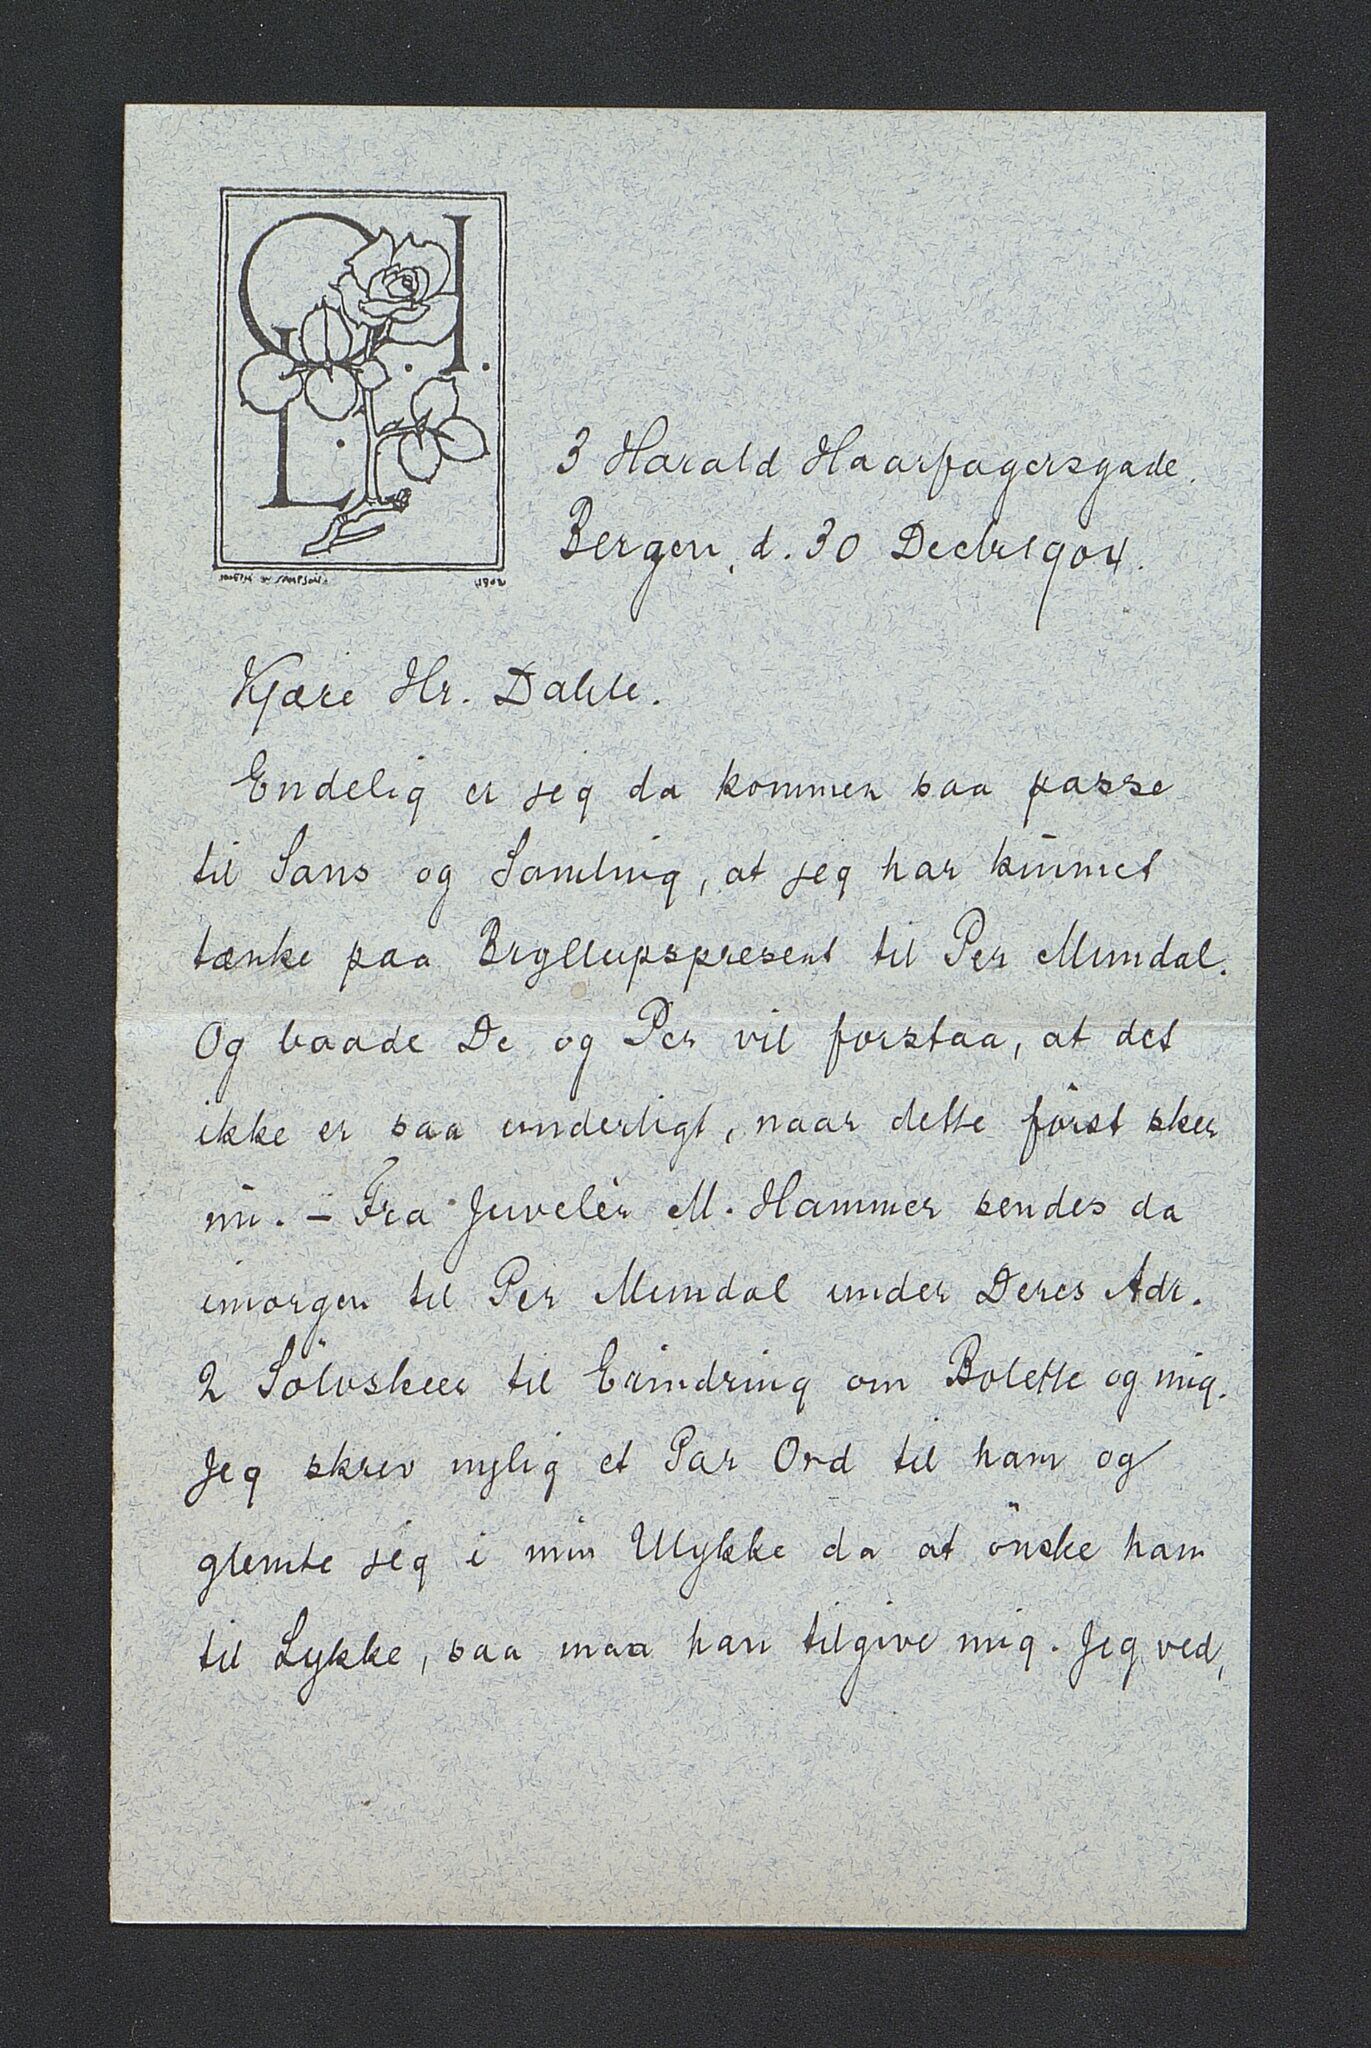 C.H.
L.
JOSEPH M SAMPSON. 1902
3 Harald Haarfagersgade.
Bergen, d. 30 Decbr 1904.
Kjære Hr. Dahle.
Endelig er jeg da kommen saa passe
til Sans og Samling, at jeg har kunnet
tænke paa Bryllupspresent til Per Mundal.
Og baade De og Per vil forstaa, at det
ikke er saa underligt, naar dette först sker
nu. – Fra Juvelér M. Hammer sendes da
imorgen til Per Mundal under Deres Adr.
2 Sölvskeer til Erindring om Bolette og mig.
Jeg skrev nylig et Par Ord til ham og
glemte jeg i min Ulykke da at önske ham
til Lykke, saa maa han tilgive mig. Jeg ved,